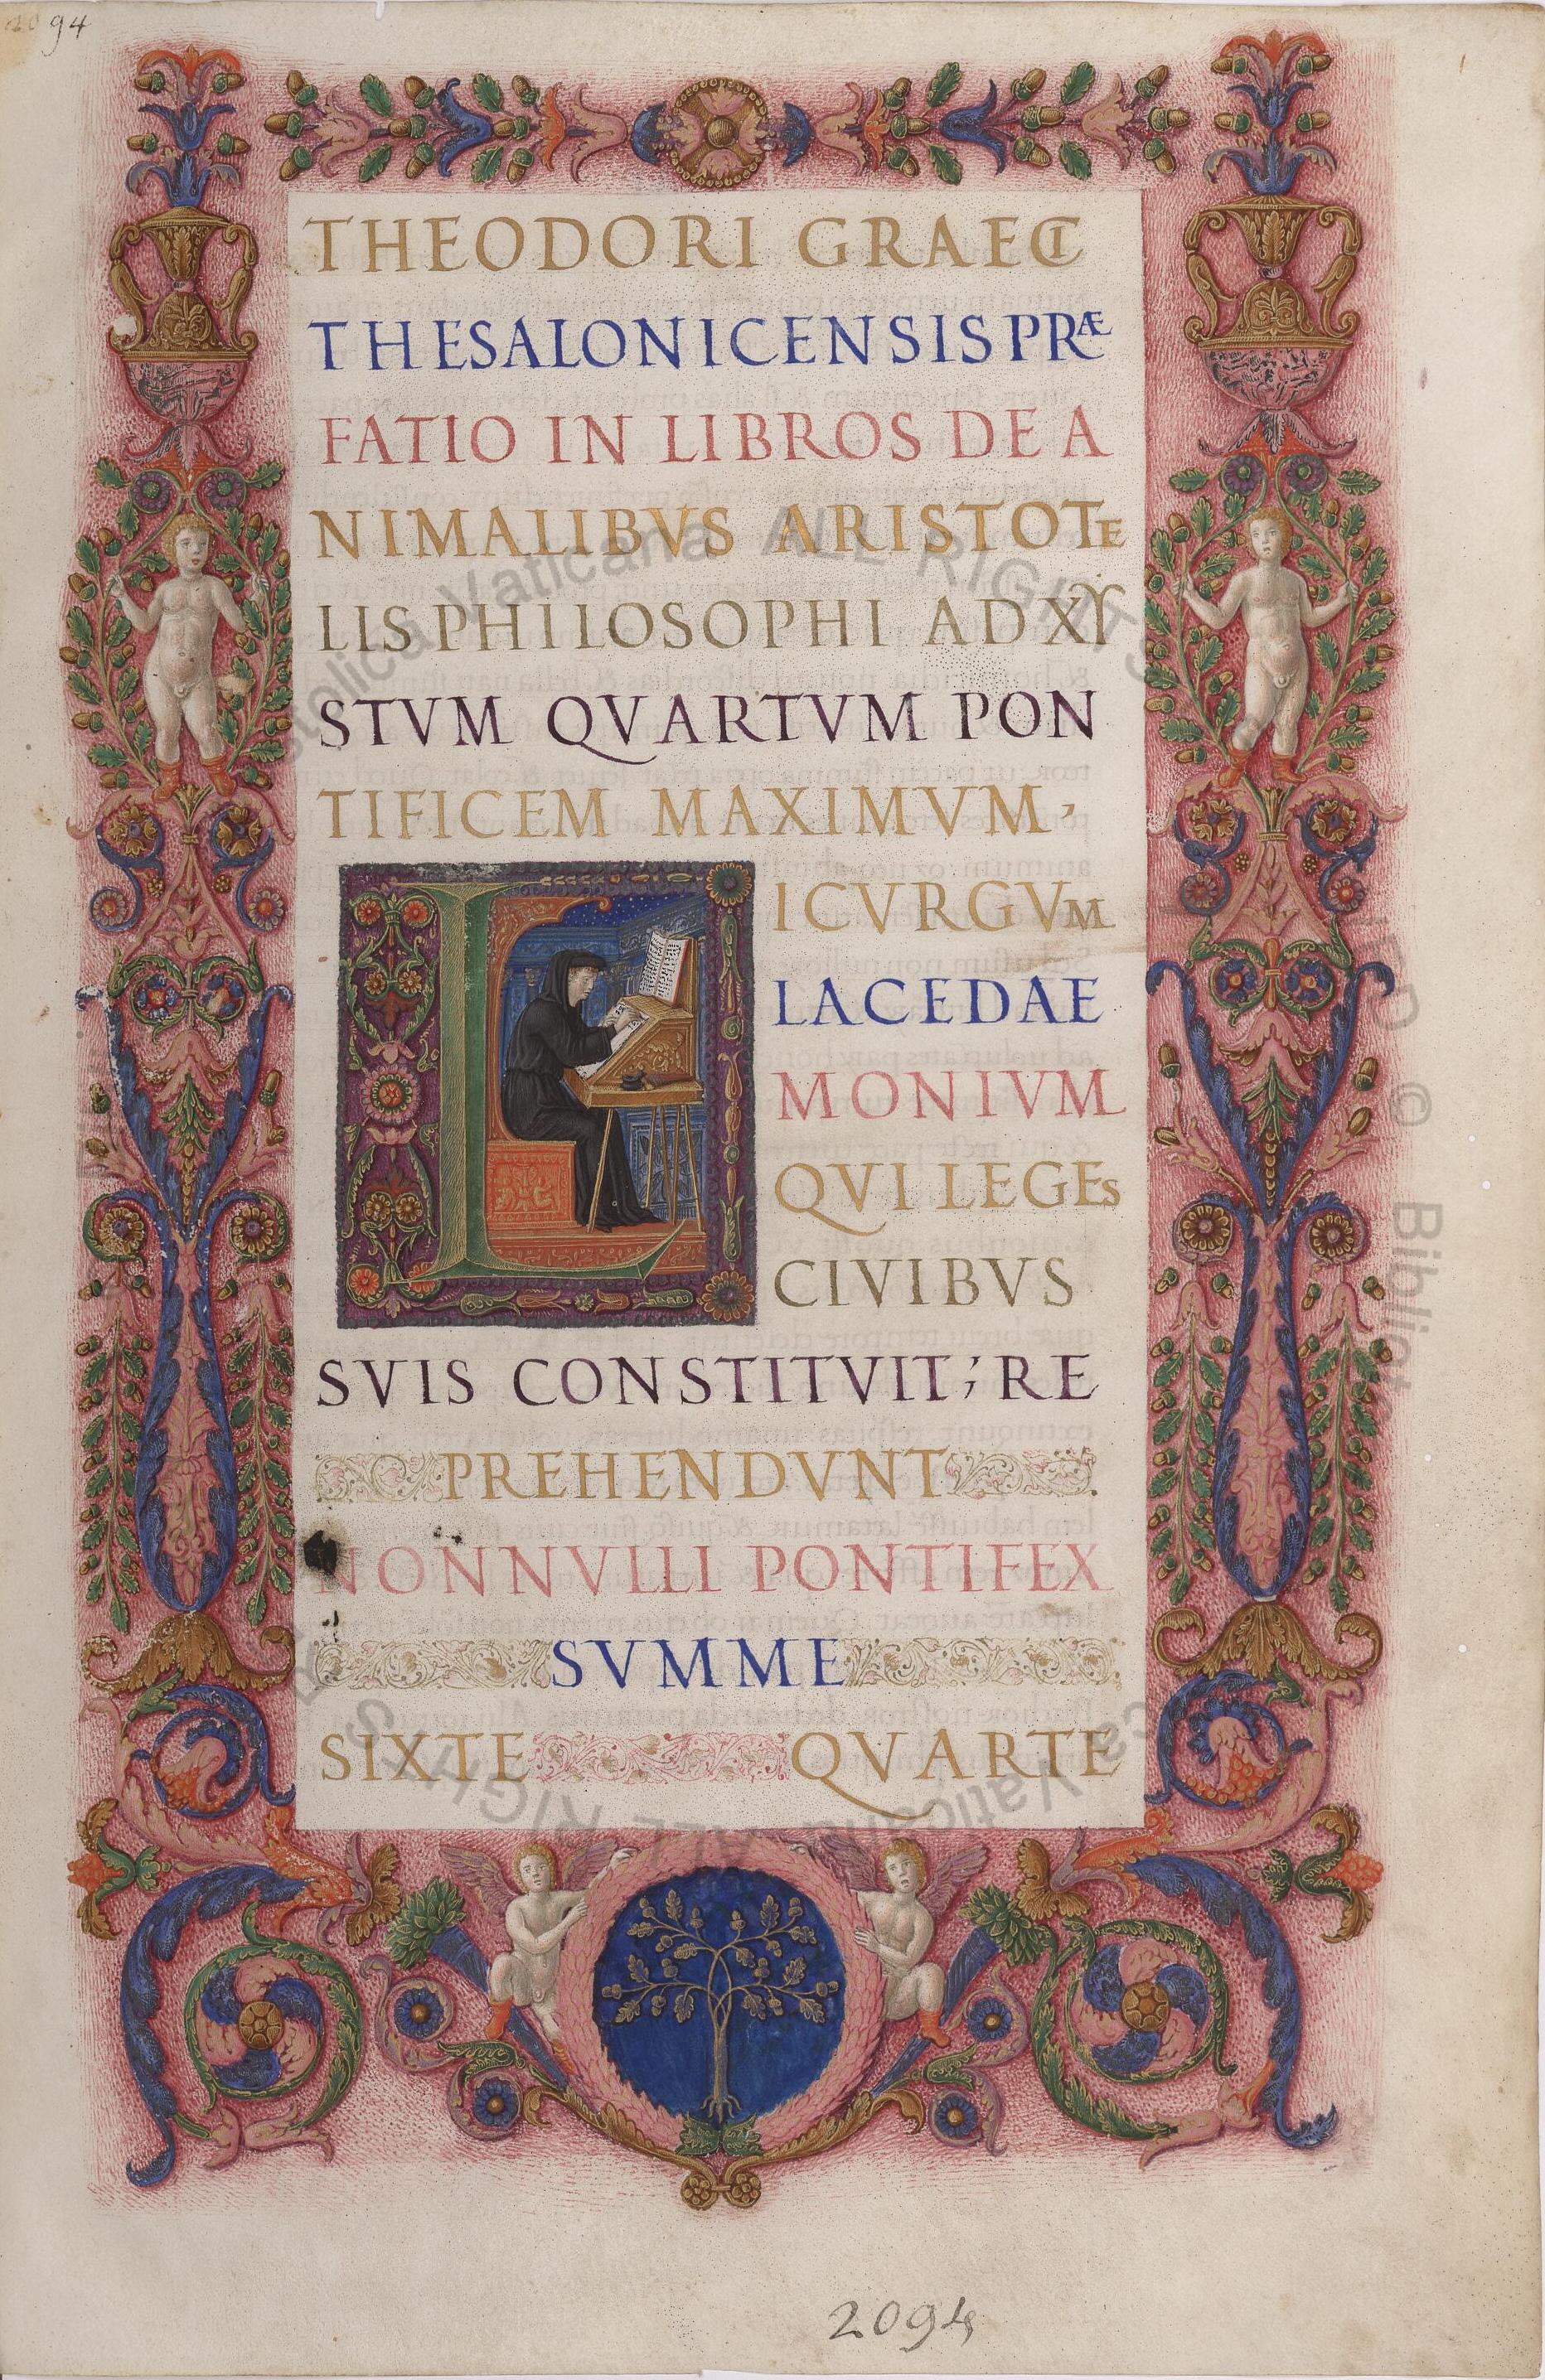 2094
THEODORI GRAECI
THESALONICENSIS PRÆ
FATIO IN LIBROS DE A
NIMALIBVS ARISTOTE
LIS PHILOSOPHI AD XY
STVM QVARTVM PON
TIFICEM MAXIMVM,
LICVRGVM
LACEDAE
MONIVM
QVI LEGES
CIVIBVS
SVIS CONSTITVIT; RE
PREHENDVNT
NONNVLLI PONTIFEX
SVMME
SIXTE QVARTE
2094